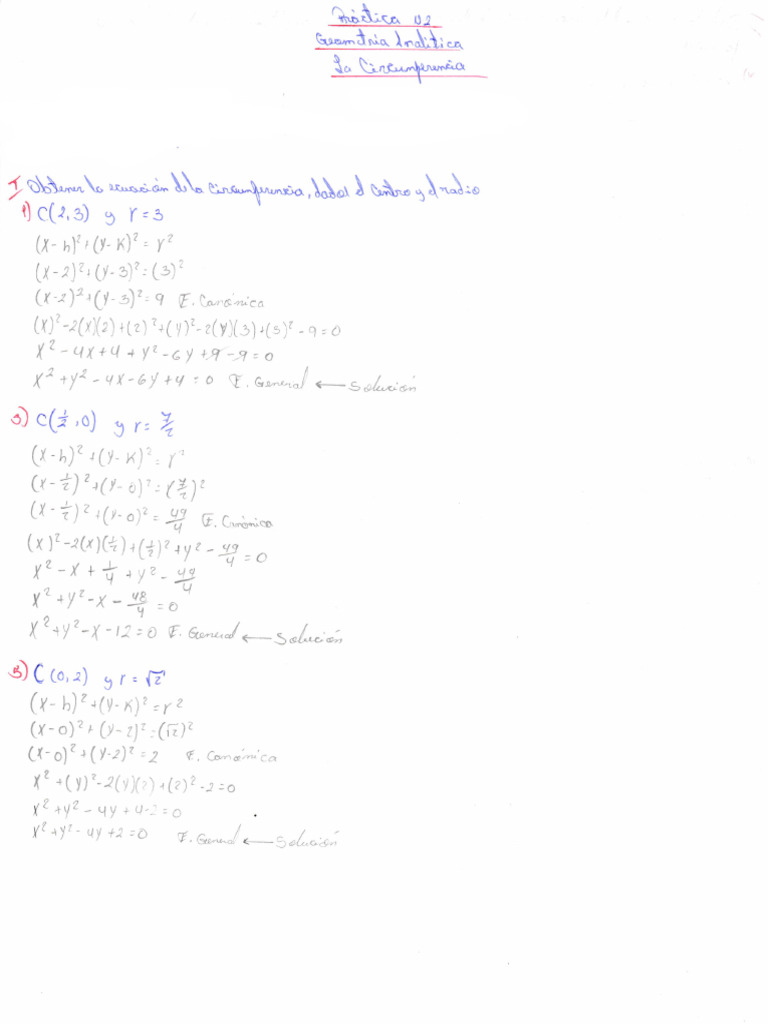 Práctica U2
Geometría Analítica
La Circunferencia
I Obtener la ecuación de la Circunferencia, dados el Centro y el radio
1) C(2,3) y r = 3
(x-h)²+(y-k)²= r²
(x-2)²+(y-3)²=(3)²
(x-2)²+(y-3)²=9 E. Canónica
(x)²-2(x)(2)+(2)²+(y)²-2(y)(3)+(3)²-9=0
x²-4x+4+y²-6y+9-9=0
x²+y²-4x-6y+4=0 E. General ← Solución
3) C(1/2,0) y r= 7/2
(x-h)²+(y-k)²=r²
(x-1/2)²+(y-0)²=(7/2)²
(x-1/2)²+(y-0)²=49/4 E. Canónica
(x)²-2(x)(1/2)+(1/2)²+y²-49/4=0
x²-x+1/4+y²-49/4
x²+y²-x-48/4=0
x²+y²-x-12=0 E. General ← Solución
5) C(0,2) y r=√2
(x-h)²+(y-k)²=r²
(x-0)²+(y-2)²=(√2)²
(x-0)²+(y-2)²=2 E. Canónica
x²+(y)²-2(y)(2)+(2)²-2=0
x²+y²-4y+4-2=0
x²+y²-4y+2=0 E. General ← Solución